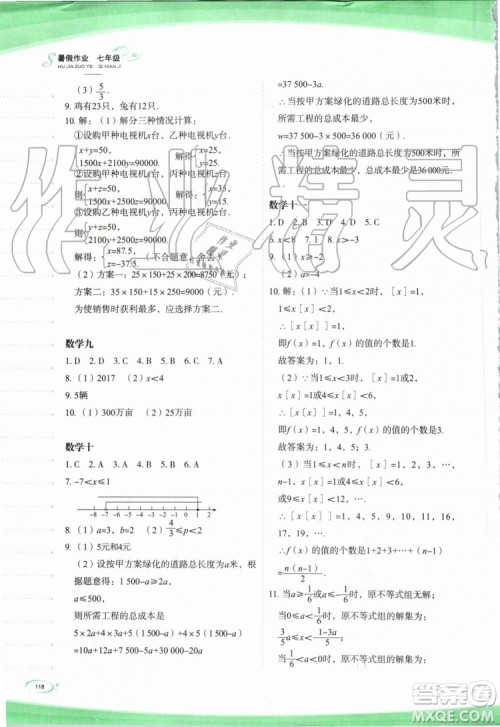 暑假作业 七年级
HU JIA ZUO YE QI NIAN JI
（3）5/3.
9. 鸡有23只，兔有12只.
10. 解：（1）解分三种情况计算：
①设购甲种电视机x台，乙种电视机y台.
{x+y=50, 1500x+2100y=90000. 解得：{x=25, y=25.
②设购甲种电视机x台，丙种电视机z台.
{x+z=50, 1500x+2500z=90000. 解得：{x=35, z=15.
{y+z=50, 2100y+2500z=90000.
（2）方案一：25×150+25×200=8750.
方案二：35×150+15×250=9000元.
为使销售时获利最多，应选择方案二.
数学九
1. D 2. D 3. C 4. B 5. B 6. A 7. A
8.（1）2017 （2）x<4
9. 5辆
10.（1）300万亩 （2）250万亩
数学十
1. C 2. A 3. D 4. B 5. B 6. A
7. -7<x≤1
-8 -7 -6 -5 -4 -3 -2 -1 0 1 2
8.（1）a=3，b=2 （2）4/3≤p<2
9.（1）5元和4元
（2）设按甲方案绿化的道路总长度为a米，根
据题意得：1 500-a≥2a
a≤500,
则所需工程的总成本是
5×2a+4×3a+5（1 500-a）+4×5（1 500-a）
=10a+12a+7 500-5a+30 000-20a
=37 500-3a.
∴当按甲方案绿化的道路总长度为500米时，
所需工程的总成本最少，
w=37 500-3×500=36 000元.
∴当按甲方案绿化的道路总长度为500米时，
所需工程的总成本最少，总成本最少是36 000元.
数学十一
1. D 2. A
6. x<8 7. 1 8. x>-3
9.（1）x≥-2 （2）a=-4
10. 解：（1）∵当1≤x<2时，［x］=1.
∴［x［x］］=1.
即f（x）=1，∴f（x）的值的个数是1.
故答案为：1.
∴［x［x］］=1，4，5.
即f（x）=1，4，5，∴f（x）的值的个数是3.
故答案为：1，4，5.
（3）当1≤x<n时，［x［x］］=1，或4≤x<6，
或9≤x<12，….
∴f（x）的值的个数是1+2+3+…
=n（n-1）/2.
11. 当a≥1/4或a≤-1/2时，原不等式组无解；
当0≤a<1/4时，原不等式组的解集为：
5/3a≤x<(1-3a)/5；
当-1/2<a<0时，原不等式组的解集为：
118
作业精灵
答案圈
MXQE.COM